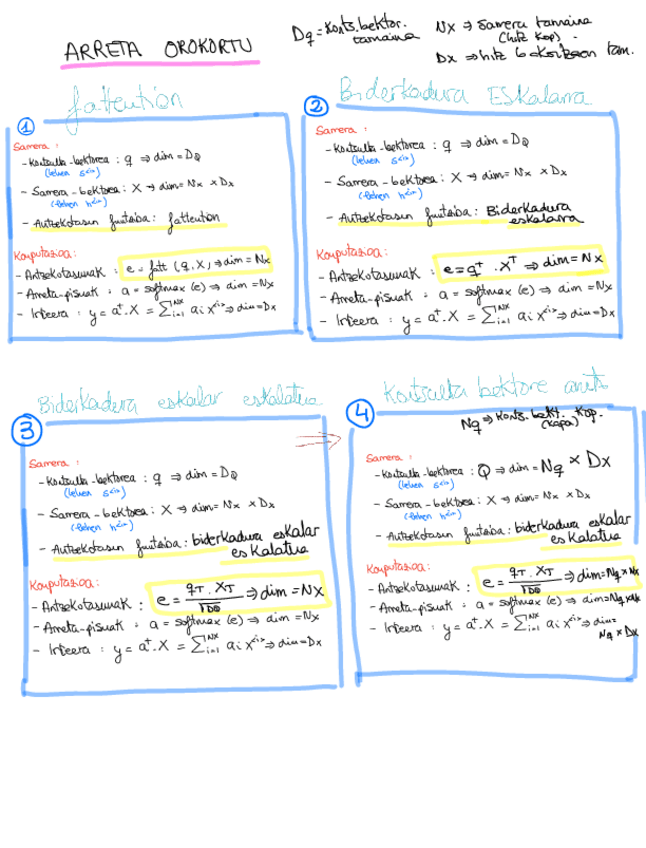 ARRETA OROKORTU
Dq = Konts. bektor. tamaina
Nx ⇒ Sarrera tamaina
(hitz kop)
Dx ⇒ hitz bektoreen tam.
① fattention
Sarrera :
- Kontsulta-bektorea : q ⇒ dim = DQ
(lehen s<i>)
- Sarrera-bektorea : X → dim = Nx x Dx
(lehen h<i>)
- Antzekotasun funtzioa : fattention
Konputazioa :
- Antzekotasunak : e = fatt (q, X) ⇒ dim = Nx
- Arreta-pisuak : a = softmax (e) ⇒ dim = Nx
- Irteera : y = aᵀ.X = ∑ᵢ₌₁ᴺˣ aᵢ x<i> ⇒ dim = Dx
② Biderkadura ESkalarra
Sarrera :
- Kontsulta-bektorea : q ⇒ dim = DQ
(lehen s<i>)
- Sarrera-bektorea : X → dim = Nx x Dx
(lehen h<i>)
- Antzekotasun funtzioa : Biderkadura
eskalarra
Konputazioa :
- Antzekotasunak : e = qᵀ . Xᵀ ⇒ dim = Nx
- Arreta-pisuak : a = softmax (e) ⇒ dim = Nx
- Irteera : y = aᵀ.X = ∑ᵢ₌₁ᴺˣ aᵢ x<i> ⇒ dim = Dx
③ Biderkadura eskalar eskalatua
Sarrera :
- Kontsulta-bektorea : q ⇒ dim = DQ
(lehen s<i>)
- Sarrera-bektorea : X ⇒ dim = Nx x Dx
(lehen h<i>)
- Antzekotasun funtzioa : biderkadura eskalar
eskalatua
Konputazioa :
- Antzekotasunak : e = qT . XT / √DQ ⇒ dim = Nx
- Arreta-pisuak : a = softmax (e) ⇒ dim = Nx
- Irteera : y = aᵀ.X = ∑ᵢ₌₁ᴺˣ aᵢ x<i> ⇒ dim = Dx
④ Kontsulta bektore anitz
Nq ⇒ Konts. bekt. kop.
(kapa)
Sarrera :
- Kontsulta-bektorea : Q ⇒ dim = Nq x Dx
(lehen s<i>)
- Sarrera-bektorea : X ⇒ dim = Nx x Dx
(lehen h<i>)
- Antzekotasun funtzioa : biderkadura eskalar
eskalatua
Konputazioa :
- Antzekotasunak : e = qT . XT / √DQ ⇒ dim = Nq x Nx
- Arreta-pisuak : a = softmax (e) ⇒ dim = Nq x Nx
- Irteera : y = aᵀ.X = ∑ᵢ₌₁ᴺˣ aᵢ x<i> ⇒ dim =
Nq x Dx